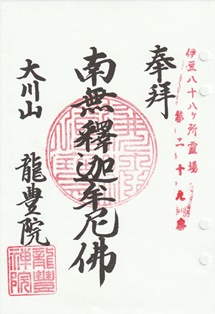 伊豆八十八ヶ所霊場
第二十九番
奉拝
南無釋迦牟尼佛
大川山
龍豊院
龍豐禅院